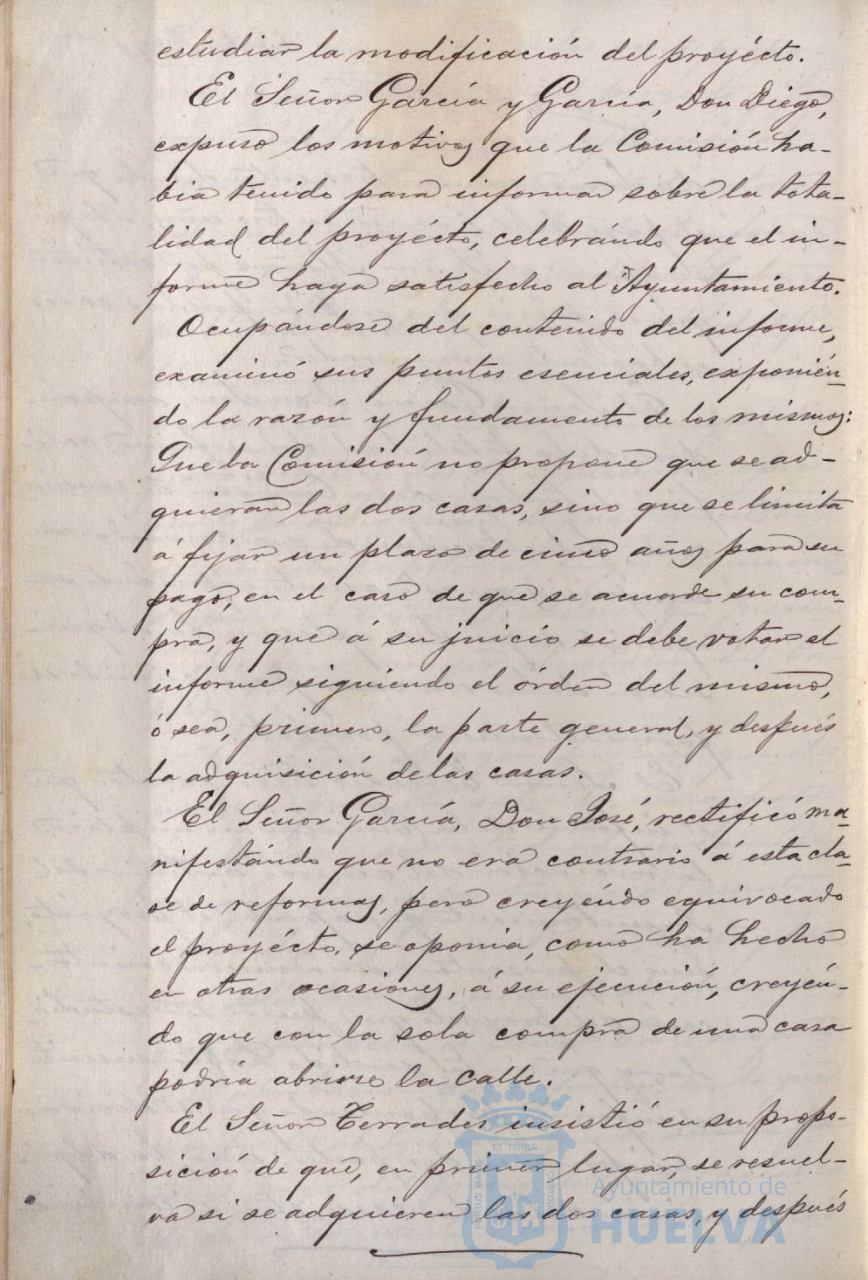 estudiar la modificación del proyécto.
El Señor García y García, Don Diego,
expuso los motivos que la Comisión ha-
bia tenido para informar sobre la tota-
lidad del proyécto, celebrándo que el in-
forme haya satisfecho al Ayuntamiento.
Ocupándose del contenido del informe,
examinó sus puntos esenciales, exponién-
do la razón y fundamento de los mismos:
Que la Comisión no propone que se ad-
quieran las dos casas, sino que se limita
á fijar un plazo de cinco años para su
pago, en el caso de que se acuerde su com-
pra, y que á su juicio se debe votar el
informe siguiendo el órden del mismo,
ó sea, primero, la parte general, y después
la adquisición de las casas.
El Señor García, Don José, rectificó ma-
nifestándo que no era contrario á esta cla-
se de reformas, pero creyéndo equivocado
el proyécto, se oponia, como ha hecho
en otras ocasiones, á su ejecución, creyén-
do que con la sola compra de una casa
podría abrirse la calle.
El Señor Terrades insistió en su propo-
sición de que, en primer lugar, se resuel-
va si se adquieren las dos casas, y después
ET TERRÆ
Ayuntamiento de
HUELVA